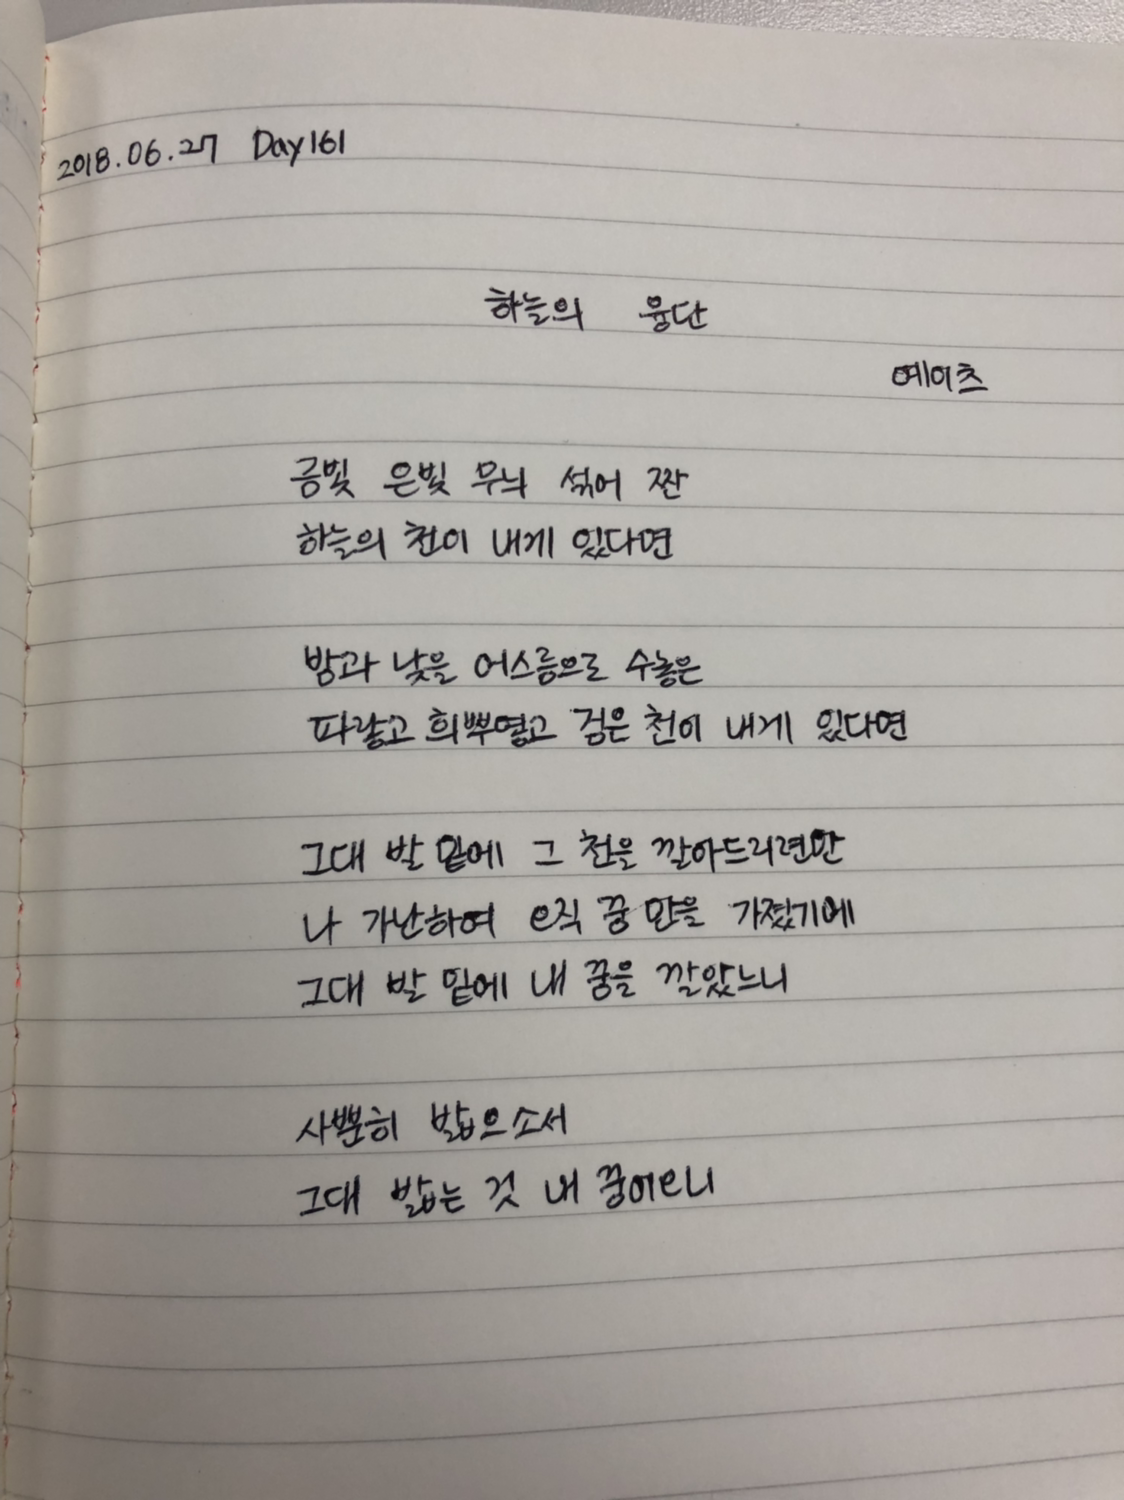 2018.06.27 Day161
하늘의 융단
예이츠
금빛 은빛 무늬 섞어 짠
하늘의 천이 내게 있다면
밤과 낮을 어스름으로 수놓은
파랗고 희뿌옇고 검은 천이 내게 있다면
그대 발 밑에 그 천을 깔아드리련만
나 가난하여 오직 꿈 만을 가졌기에
그대 발 밑에 내 꿈을 깔았느니
사뿐히 밟으소서
그대 밟는 것 내 꿈이오니